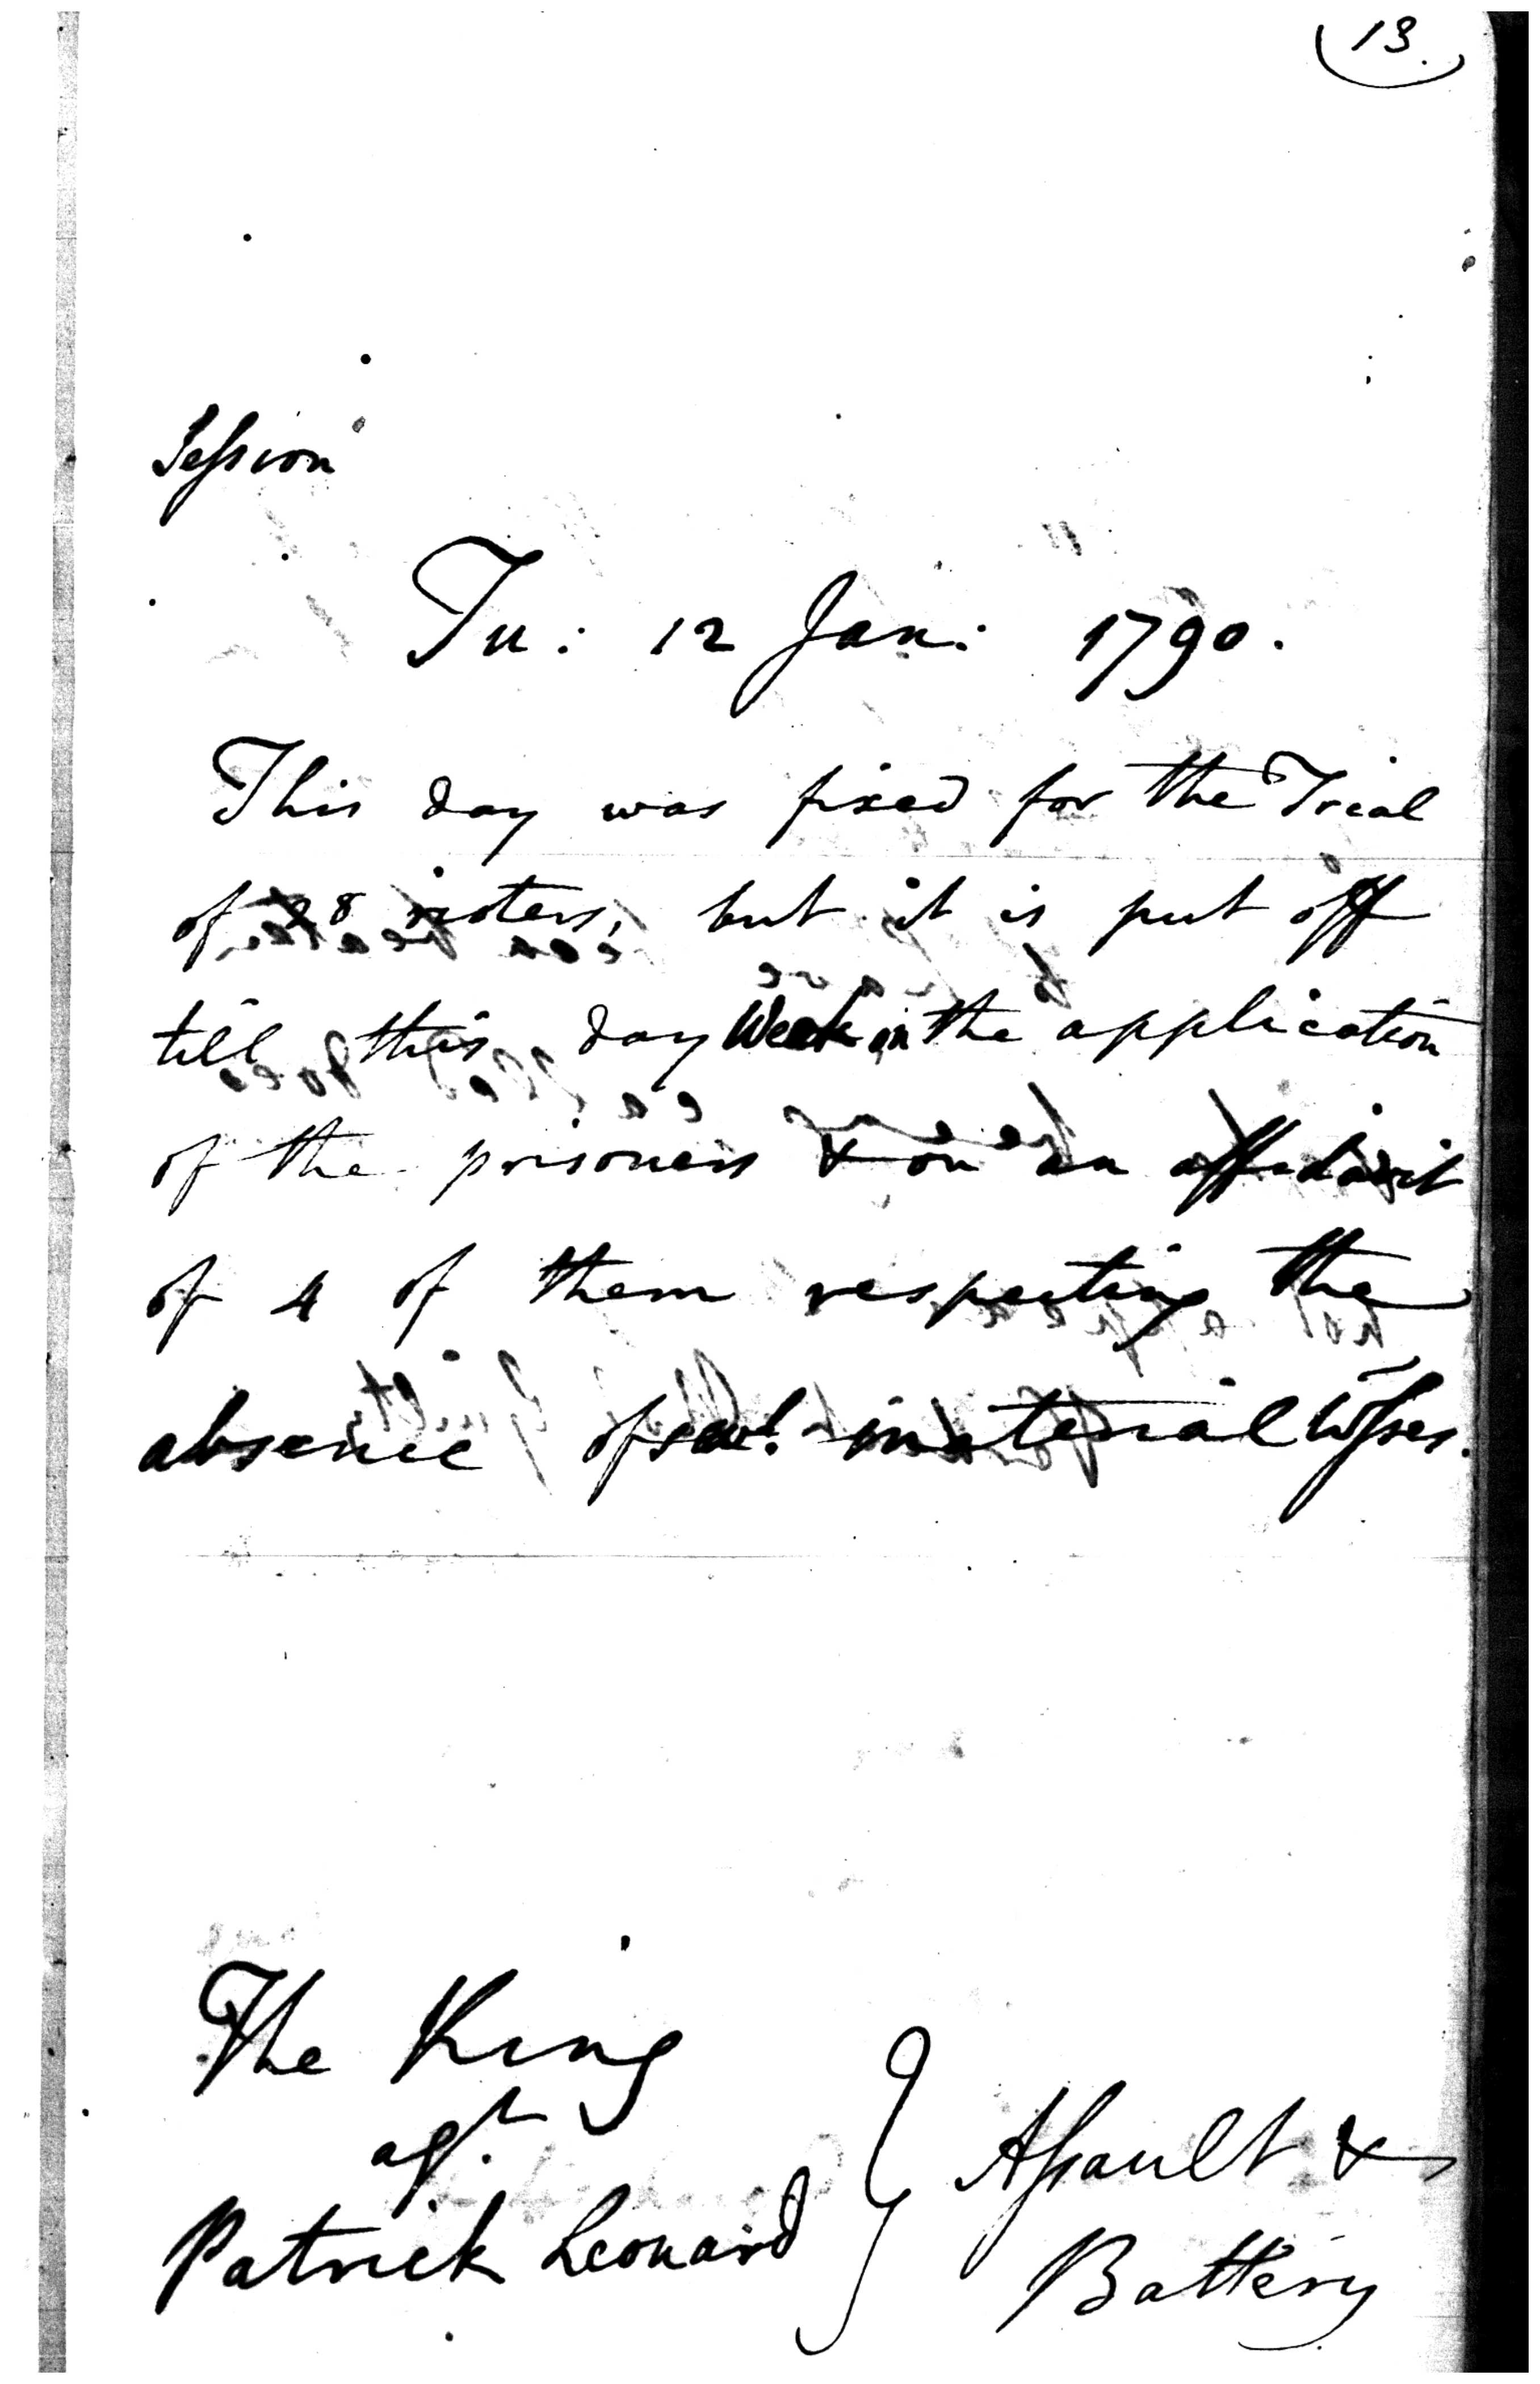 13.
Session
Tu: 12 Jan: 1790.
This day was fixed for the Trial
of 28 rioters, but it is put off
till this day Week on the application
of the prisoners & on an affidavit
of 4 of them respecting the
absence of sevl. material Wsses.
The King
agt.
Patrick Leonard
Assault &
Battery